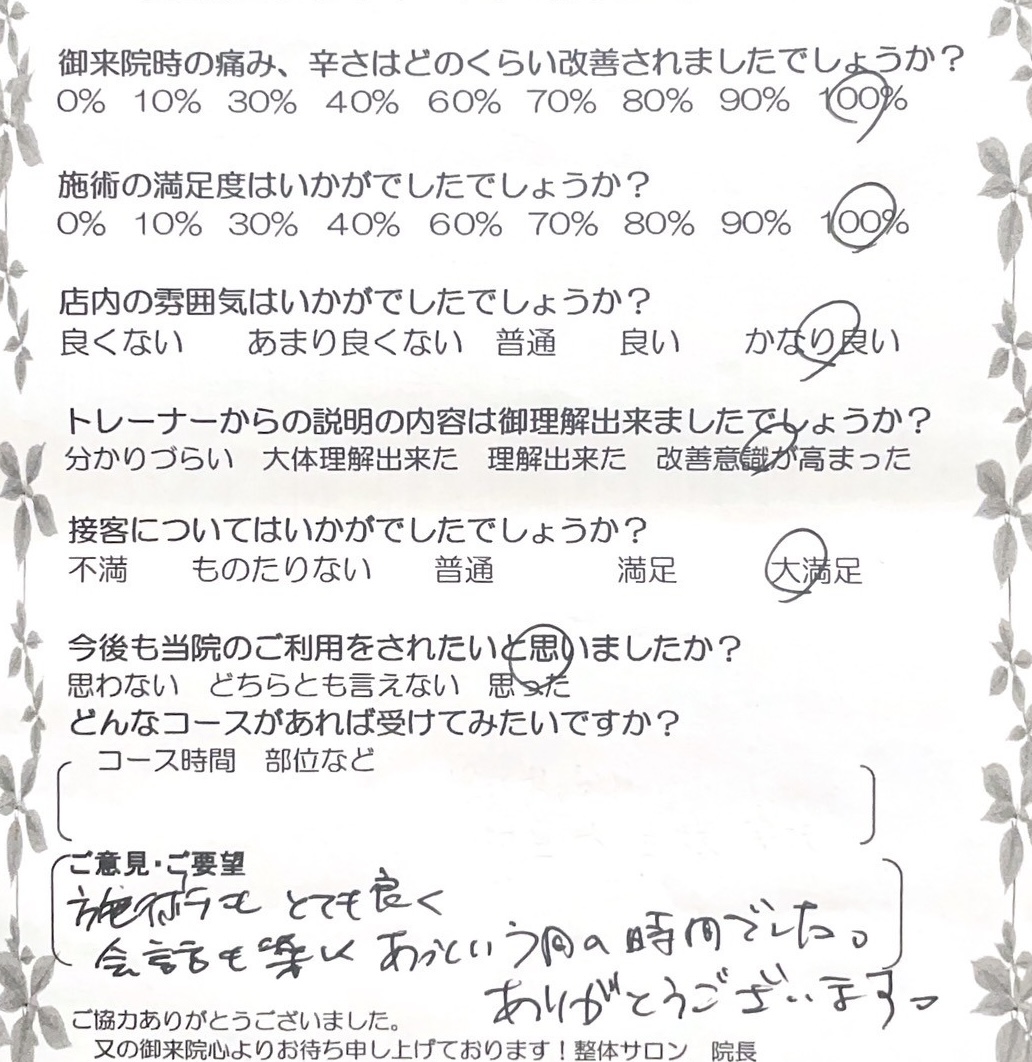 御来院時の痛み、辛さはどのくらい改善されましたでしょうか？
0% 10% 30% 40% 60% 70% 80% 90% 100%
施術の満足度はいかがでしたでしょうか？
0% 10% 30% 40% 60% 70% 80% 90% 100%
店内の雰囲気はいかがでしたでしょうか？
良くない あまり良くない 普通 良い かなり良い
トレーナーからの説明の内容は御理解出来ましたでしょうか？
分かりづらい 大体理解出来た 理解出来た 改善意識が高まった
接客についてはいかがでしたでしょうか？
不満 ものたりない 普通 満足 大満足
今後も当院のご利用をされたいと思いましたか？
思わない どちらとも言えない 思った
どんなコースがあれば受けてみたいですか？
コース時間 部位など
ご意見・ご要望
施術も とても良く
会話も楽しく あっという間の時間でした。
ありがとうございます
ご協力ありがとうございました。
又の御来院心よりお待ち申し上げております！整体サロン 院長